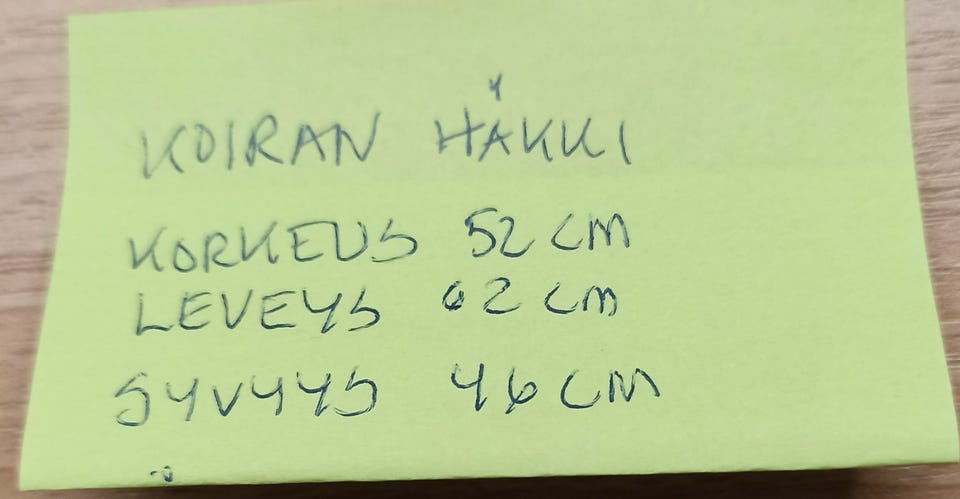 KOIRAN HÄKKI
KORKEUS 52 CM
LEVEYS 62 CM
SYVYYS 46 CM